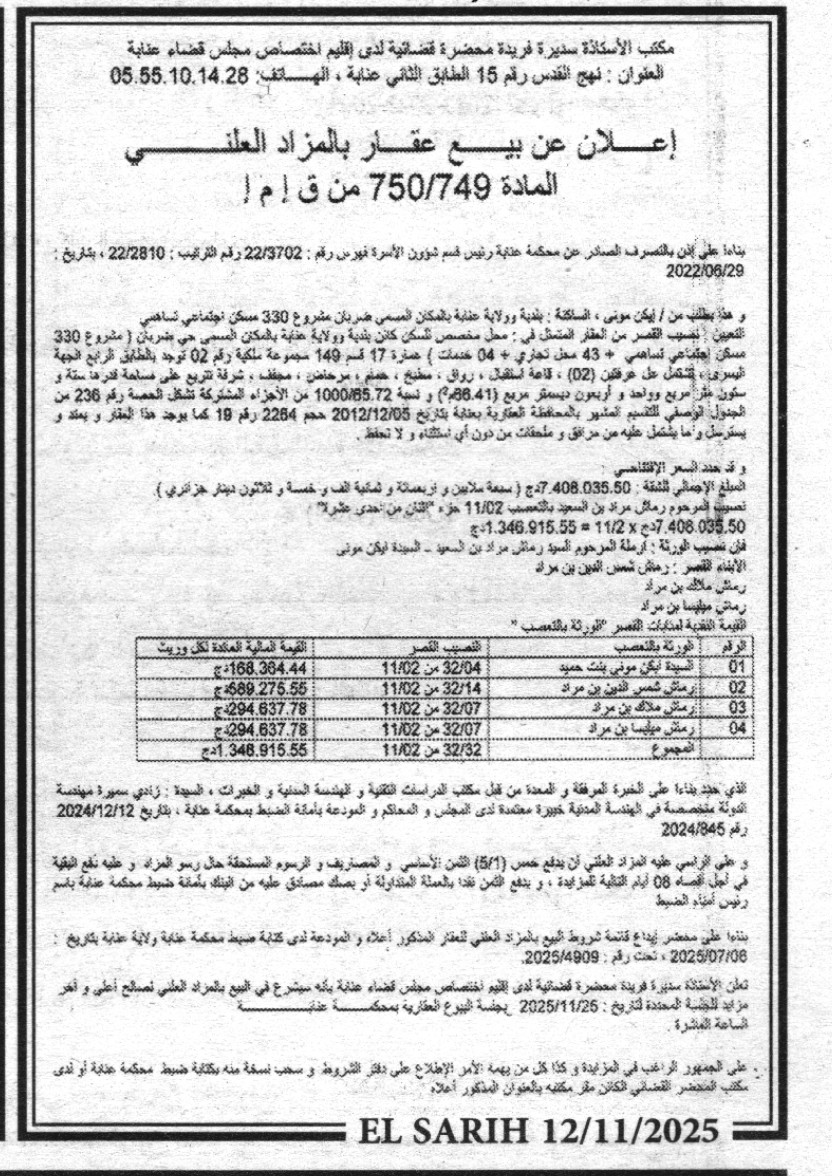 مكتب الأستاذة سديرة فريدة محضرة قضائية لدى إقليم اختصاص مجلس قضاء عنابة
العنوان : نهج القدس رقم 15 الطابق الثاني عنابة ، الهـــاتف: 05.55.10.14.28
إعـــلان عن بيـــع عقـــار بالمزاد العلنـــــي
المادة 750/749 من ق إ م إ
بناءا على إذن بالتصرف الصادر عن محكمة عنابة رئيس قسم شؤون الأسرة فهرس رقم : 22/3702 رقم الترتيب : 22/2810 ، بتاريخ :
2022/06/29
و هذا بطلب من / إيكن مونى ، الساكنة : بلدية وولاية عنابة بالمكان المسمى ضربان مشروع 330 مسكن اجتماعي تساهمي
التعيين : نصيب القصر من العقار المتمثل في : محل مخصص للسكن كائن بلدية وولاية عنابة بالمكان المسمى حي ضربان ( مشروع 330
مسكن إجتماعي تساهمي + 43 محل تجاري + 04 خدمات ) عمارة 17 قسم 149 مجموعة ملكية رقم 02 توجد بالطابق الرابع الجهة
اليسرى ، تشتمل على غرفتين (02) ، قاعة استقبال ، رواق ، مطبخ ، حمام ، مرحاض ، مجفف ، شرفة تتربع على مساحة قدرها ستة و
ستون متر مربع وواحد و أربعون ديسمتر مربع (66.41م²) و نسبة 1000/65.72 من الأجزاء المشتركة تشكل الحصة رقم 236 من
الجدول الوصفي للتقسيم المشهر بالمحافظة العقارية بعنابة بتاريخ 2012/12/05 حجم 2264 رقم 19 كما يوجد هذا العقار و يمتد و
يسترسل وما يشتمل عليه من مرافق و ملحقات من دون أي استثناء و لا تحفظ .
و قد حدد السعر الإفتتاحي :
المبلغ الإجمالي للشقة : 7.408.035.50دج ( سبعة ملايين و أربعمائة و ثمانية الف و خمسة و ثلاثون دينار جزائري ).
نصيب المرحوم رماش مراد بن السعيد بالتعصب 11/02 جزء "اثنان من احدى عشرا"
7.408.035.50دج x 11/2 = 1.346.915.55دج
فإن نصيب الورثة : أرملة المرحوم السيد رماش مراد بن السعيد – السيدة ايكن مونى
الأبناء القصر : رماش شمس الدين بن مراد
رماش ملاك بن مراد
رماش ميليسا بن مراد
القيمة النقدية لمنابات القصر "الورثة بالتعصب "
الرقم الورثة بالتعصب النصيب القصر القيمة المالية العائدة لكل وريث
01 السيدة ايكن مونى بنت حميد 32/04 من 11/02 168.364.44دج
02 رماش شمس الدين بن مراد 32/14 من 11/02 589.275.55دج
03 رماش ملاك بن مراد 32/07 من 11/02 294.637.78دج
04 رماش ميليسا بن مراد 32/07 من 11/02 294.637.78دج
المجموع 32/32 من 11/02 1.346.915.55دج
الذي حدد بناءا على الخبرة المرفقة و المعدة من قبل مكتب الدراسات التقنية و الهندسة المدنية و الخبرات ، السيدة : زادي سميرة مهندسة
الدولة متخصصة في الهندسة المدنية خبيرة معتمدة لدى المجلس و المحاكم و المودعة بأمانة الضبط بمحكمة عنابة ، بتاريخ 2024/12/12
رقم 2024/845
و على الراسي عليه المزاد العلني أن يدفع خمس (5/1) الثمن الأساسي و المصاريف و الرسوم المستحقة حال رسو المزاد و عليه دفع البقية
في أجل أقصاه 08 أيام التالية للمزايدة ، و يدفع الثمن نقدا بالعملة المتداولة أو بصك مصادق عليه من البنك بأمانة ضبط محكمة عنابة باسم
رئيس أمناء الضبط
بناءا على محضر إيداع قائمة شروط البيع بالمزاد العلني للعقار المذكور أعلاه و المودعة لدى كتابة ضبط محكمة عنابة ولاية عنابة بتاريخ :
2025/07/06 ، تحت رقم : 2025/4909.
تعلن الأستاذة سديرة فريدة محضرة قضائية لدى إقليم اختصاص مجلس قضاء عنابة بأنه سيشرع في البيع بالمزاد العلني لصالح أعلى و آخر
مزايد للجلسة المحددة لتاريخ : 2025/11/25 بجلسة البيوع العقارية بمحكمـــــة عنابــــــــــة
الساعة العاشرة .
على الجمهور الراغب في المزايدة و كذا كل من يهمه الأمر الإطلاع على دفتر الشروط و سحب نسخة منه بكتابة ضبط محكمة عنابة أو لدى
مكتب المحضر القضائي الكائن مقر مكتبه بالعنوان المذكور أعلاه
EL SARIH 12/11/2025